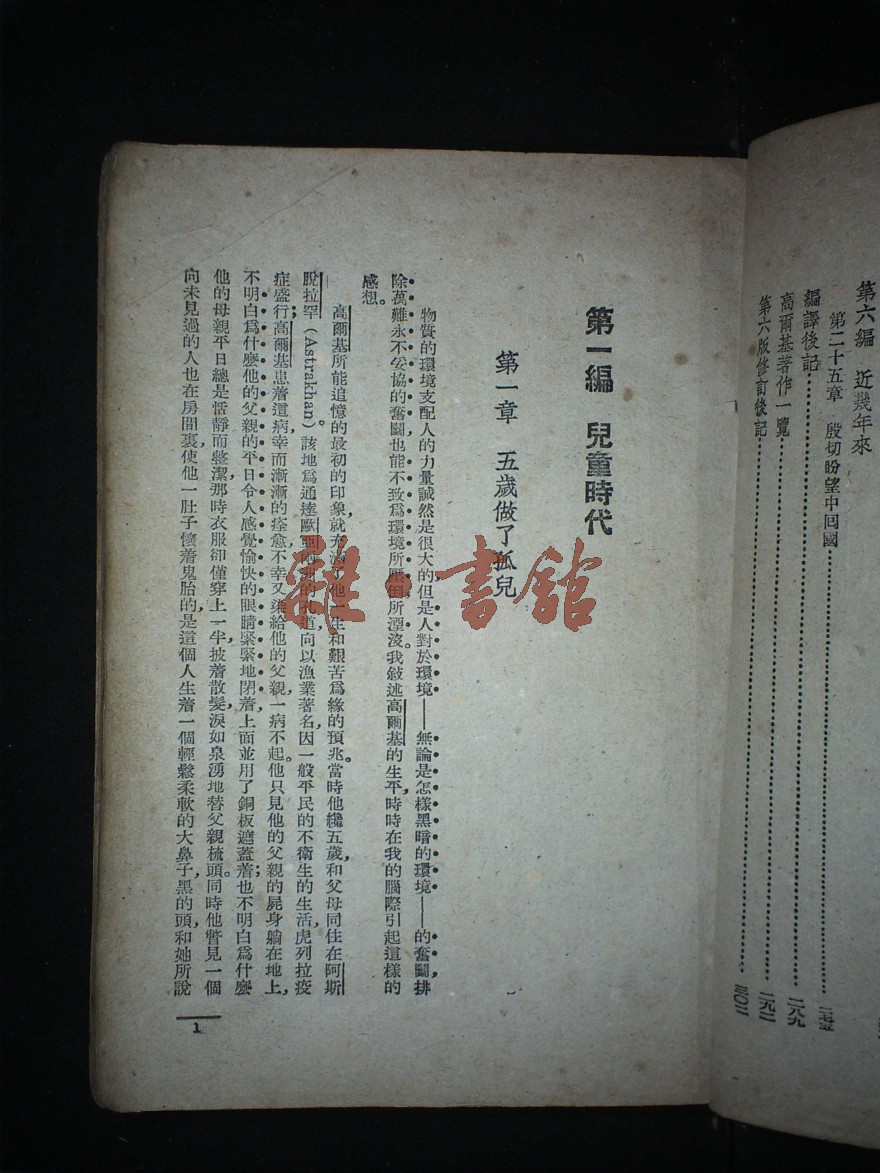 第六編　近幾年來
第二十五章　殷切盼望中回國……二七五
編譯後記……二八九
高爾基著作一覽……二九二
第六版修訂後記……三〇二
第一編　兒童時代
第一章　五歲做了孤兒
物質的環境支配人的力量誠然是很大的，但是人對於環境——無論是怎樣黑暗的環境——的奮鬭，排
除萬難永不妥協的奮鬭，也能不致爲環境所壓倒，所湮沒。我敍述高爾基的生平，時時在我的腦際引起這樣的
感想。
高爾基所能追憶的最初的印象，就充滿了他一生和艱苦爲緣的預兆。當時他纔五歲，和父母同住在阿斯
脫拉罕（Astrakhan）該地爲通達歐亞兩洲的孔道，向以漁業著名，因一般平民的不衞生的生活，虎列拉疫
症盛行；高爾基患着這病，幸而漸漸的痊愈，不幸又染給他的父親，一病不起。他只見他的父親的屍身躺在地上，
不明白爲什麼他的父親的平日令人感覺愉快的眼睛緊緊地閉着，上面並用了銅板遮蓋着；也不明白爲什麼
他的母親平日總是恬靜而整潔，那時衣服卻僅穿上一半，披着散髮，淚如泉湧地替父親梳頭。同時他瞥見一個
向未見過的人也在房間裏，使他一肚子懷着鬼胎的，是這個人生着一個輕鬆柔軟的大鼻子，黑的頭，和她所說
1
雜·書館